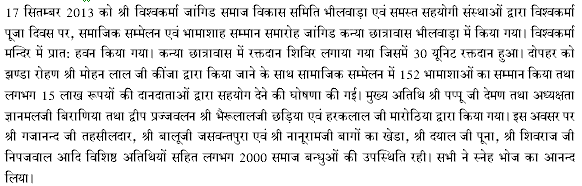 17 सितम्बर 2013 को श्री विश्वकर्मा जांगिड समाज विकास समिति भीलवाड़ा एवं समस्त सहयोगी संस्थाओं द्वारा विश्वकर्मा
पूजा दिवस पर, सामाजिक सम्मेलन एवं भामाशाह सम्मान समारोह जांगिड कन्या छात्रावास भीलवाड़ा में किया गया। विश्वकर्मा
मन्दिर में प्रात: हवन किया गया। कन्या छात्रावास में रक्तदान शिविर लगाया गया जिसमें 30 यूनिट रक्तदान हुआ। दोपहर को
झण्डा रोहण श्री मोहन लाल जी कींजा द्वारा किया जाने के साथ सामाजिक सम्मेलन में 152 भामाशाओं का सम्मान किया तथा
लगभग 15 लाख रूपयों की दानदाताओं द्वारा सहयोग देने की घोषणा की गई। मुख्य अतिथि श्री पप्पू जी देमण तथा अध्यक्षता
ज्ञानमलजी बिराणिया तथा द्वीप प्रज्जवलन श्री भैरूलालजी छड़िया एवं हरकलाल जी मारोठिया द्वारा किया गया। इस अवसर पर
श्री गजानन्द जी तहसीलदार, श्री बालूजी जसवन्तपुरा एवं श्री नानूरामजी बागों का खेडा, श्री दयाल जी पूना, श्री शिवराज जी
निपजवाल आदि विशिष्ठ अतिथियों सहित लगभग 2000 समाज बन्धुओं की उपस्थिति रही। सभी ने स्नेह भोज का आनन्द
लिया।